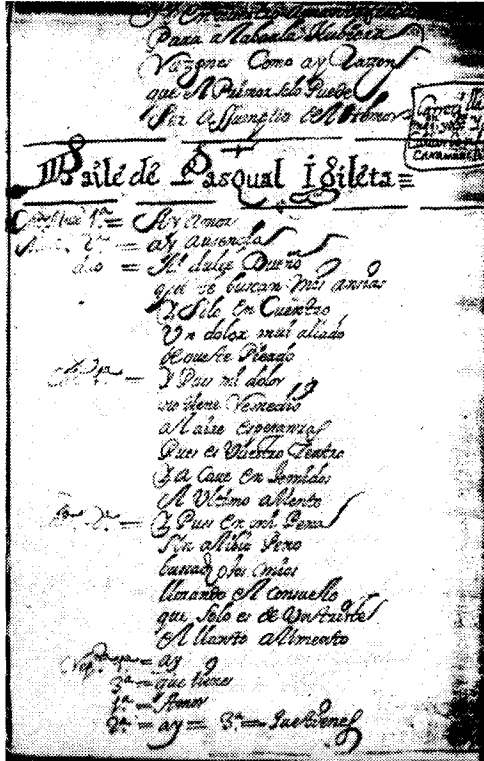 Para alabarla hubiera
Razones Como ay Razon
que el Primor solo Puede
Ser Assumpto del Primor
Baile de Pasqual i Gileta =
1ª = Ay Amor
= ay ausencia
dulçe Dueño
que te buscan mis ansias
Y Solo En Cuentro
Un dolor mui aliado
de que te Pierdo
= Y Pues mi dolor
no tiene Remedio
Al aire esperanzas
Pues es Vuestro Zentro
Y a Cave En Jemidos
El Ultimo aliento
= Y Pues En mi Pena
Sin alibio Peno
buscad ojos mios
llorando el Consuelo
que solo es de Un triste
el llanto alimento
= ay
3ª = que tienes
1ª = Amor
2ª = ay = 3ª = que tienes